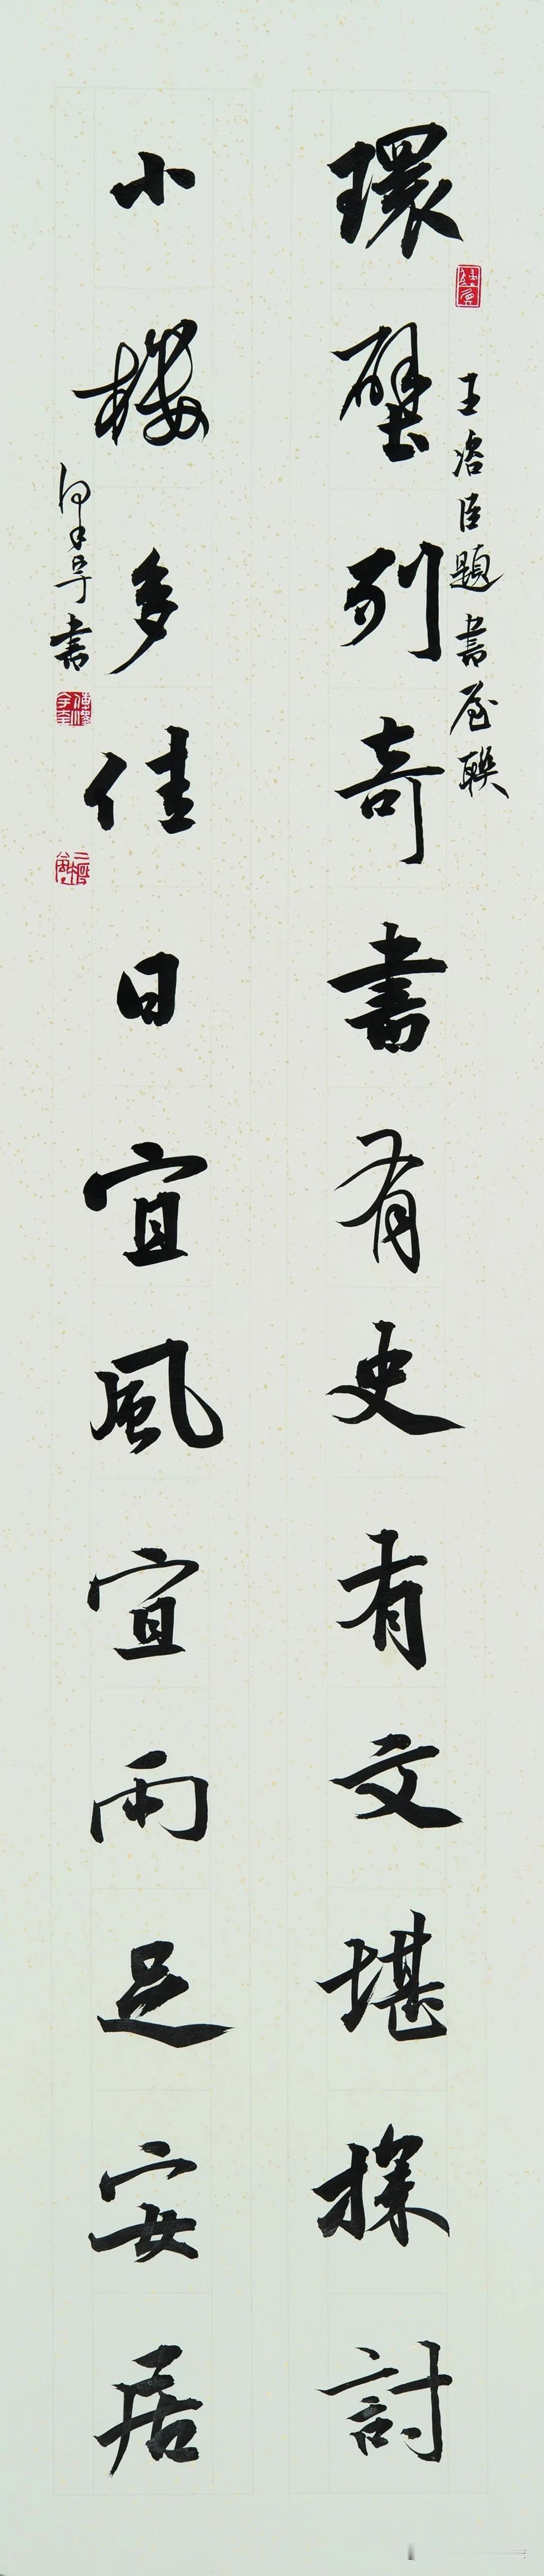 環壁列奇書有史有文堪探討
王洛臣題書屋聯
小樓多佳日宜風宜雨足安居
書